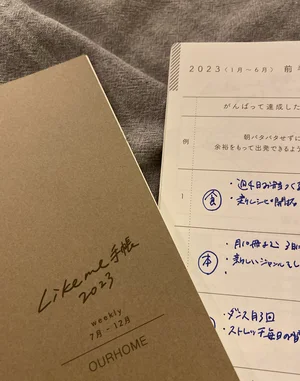 Likeme手帳
2023
weekly
7月－12月
OURHOME
2023（1月～6月）前
がんばって達成した
例
朝バタバタせずに
余裕をもって出発できるよう
1
食
・週4日お弁当づく
・新レシピ開拓
本
・月10冊よむ 3日
・新しいジャンルも
・ダンス月3回
・ストレッチ毎日の習